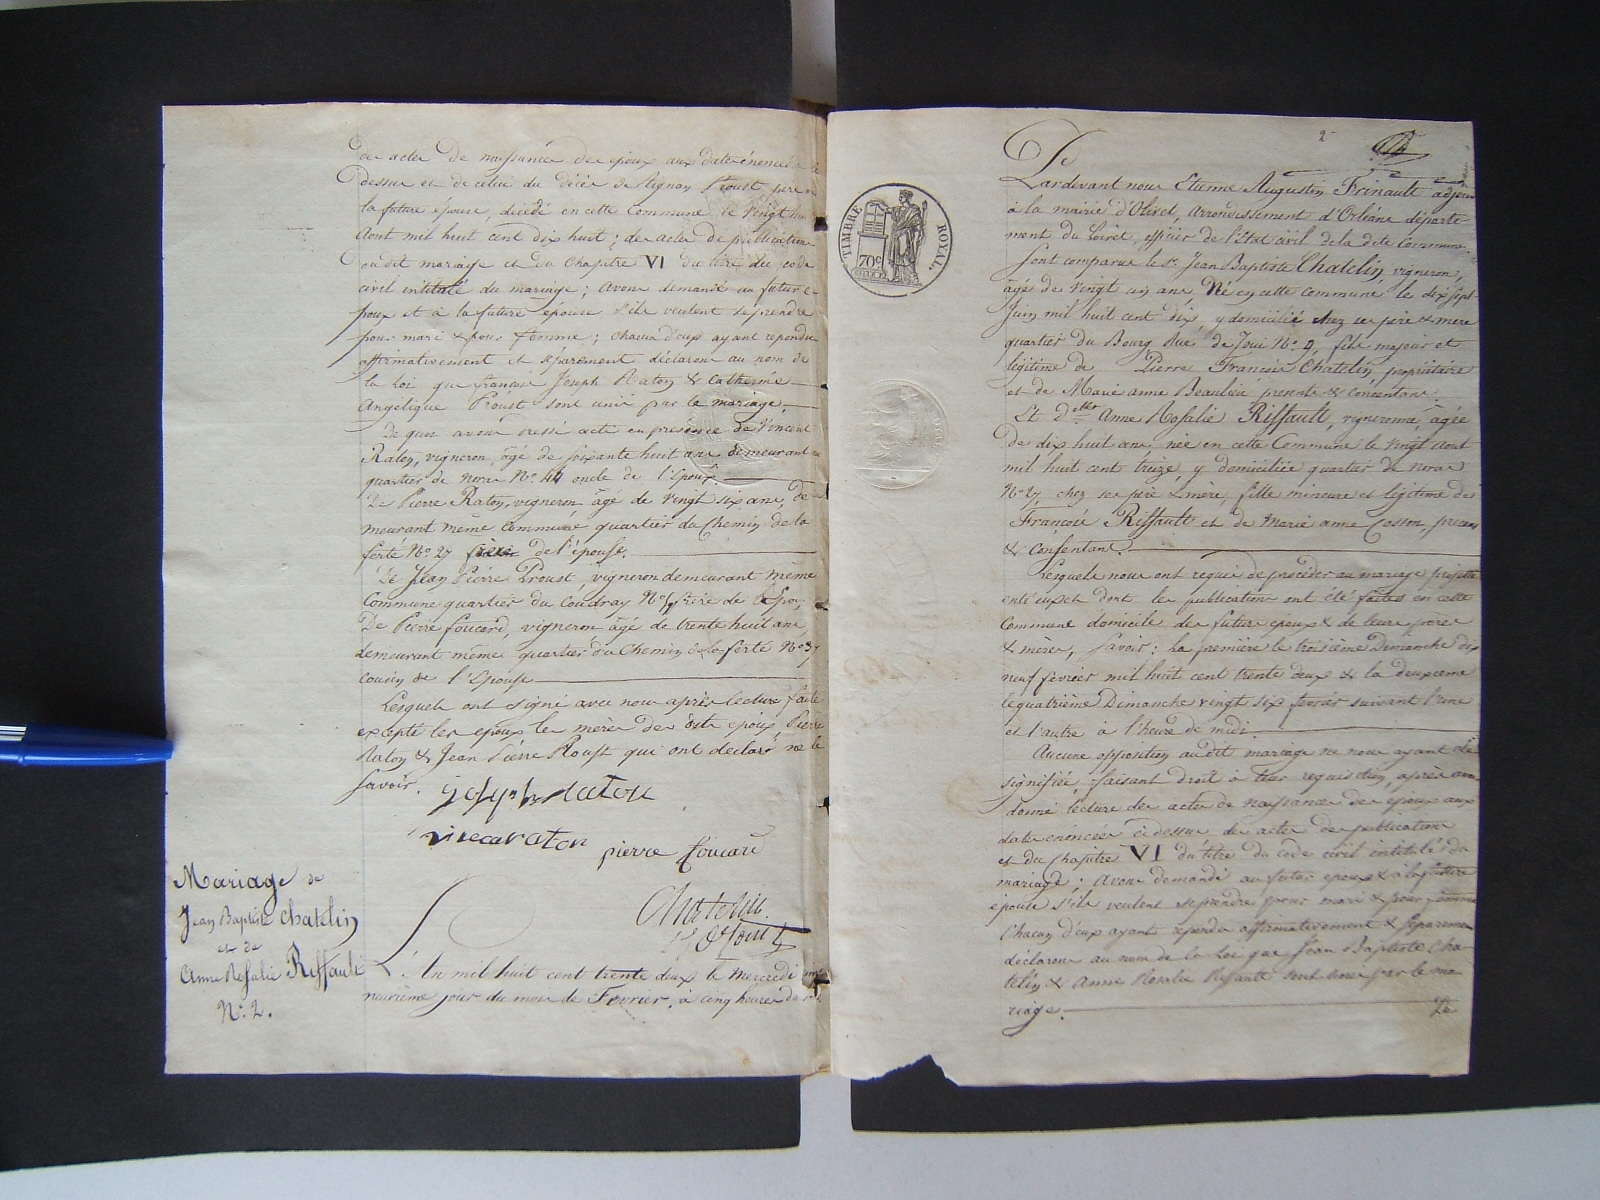 des actes de naissance des époux aux dates énoncées
dessus et de celui du décès de Aignan Proust, père de
la future épouse, décédé en cette Commune le Vingt huit
Aout mil huit cent dix huit ; des actes de publication
dudit mariage et du Chapitre VI du titre du code
civil intitulé du mariage ; Avons demandé au futur é-
poux et à la future épouse s'ils veulent se prendre
pour mari & pour femme ; chacun d'eux ayant répondu
affirmativement et séparément déclarons au nom de
la Loi que françois Joseph Raton & Catherine
Angélique Proust sont unis par le mariage.
De quoi avons dressé acte en présence de Vincent
Raton, vigneron âgé de soixante huit ans demeurant
quartier de noras No. 44 oncle de l'Epoux.
De Pierre Raton, vigneron âgé de vingt six ans, de-
meurant même Commune quartier du Chemin de la
ferté No. 27 frère de l'épouse.
De Jean Pierre Proust, vigneron demeurant même
Commune quartier du Coudray No. frère de l'Epou
De Pierre foucard, vigneron âgé de trente huit ans
demeurant même quartier du Chemin de la ferté No. 37
cousin de l'Epouse
Lesquels ont signé avec nous après lecture faite
excepté les époux les mères des dits époux Pierre
Raton & Jean Pierre Proust qui ont déclaré ne le
savoir.
joseph raton
vincent raton
pierre foucard
Chatelin
Mariage de
Jean Baptiste Chatelin
et de
Anne Rosalie Riffault
No. 2.
L'An mil huit cent trente deux le mercredi vingt
neuvième jour du mois de Fevrier, à cinq heures de
TIMBRE ROYAL.
70c
2
Pardevant nous Etienne Augustin Frinault adjoint
à la mairie d'Olivet, Arrondissement d'Orléans départe
ment du Loiret, officier de l'Etat civil de la dite Commune
Sont comparus le Sr. Jean Baptiste Chatelin vigneron,
âgé de Vingt un ans, Né en cette commune le dix sept
Juin mil huit cent dix y domicilié chez ses père & mère
quartier du Bourg Rue de Joui No. 4, fils majeur et
légitime de Pierre François Chatelin, propriétaire
et de Marie anne Beaulieu présents & consentans.
Et Delle Anne Rosalie Riffault, vigneronne, âgée
de dix huit ans, née en cette Commune le Vingt Aout
mil huit cent treize, y domiciliée quartier de noras
No. 27, chez ses père & mère, fille mineure et légitime de
François Riffault et de Marie anne Cosson, présens
& Consentans.
Lesquels nous ont requis de procéder au mariage projetté
entr'eux et dont les publications ont été faites en cette
Commune domicile des futurs époux & de leurs pères
& mères, Savoir : la première le troisième Dimanche dix
neuf février mil huit cent trente deux & la deuxième
le quatrième Dimanche vingt six fevrier suivant l'une
et l'autre à l'heure de midi.
Aucune opposition audit mariage ne nous ayant été
signifiée, faisant droit à leur requisition, après avoir
donné lecture des actes de naissances des époux aux
dates énoncées ci dessus des actes de publication
et du Chapitre VI du titre du code civil intitulé du
mariage ; Avons demandé au futur époux & à la future
épouse s'ils veulent se prendre pour mari & pour femme
Chacun d'eux ayant répondu affirmativement & séparément
déclarons au nom de la Loi que Jean Baptiste Cha-
telin & Anne Rosalie Riffault sont unis par le ma-
riage. De